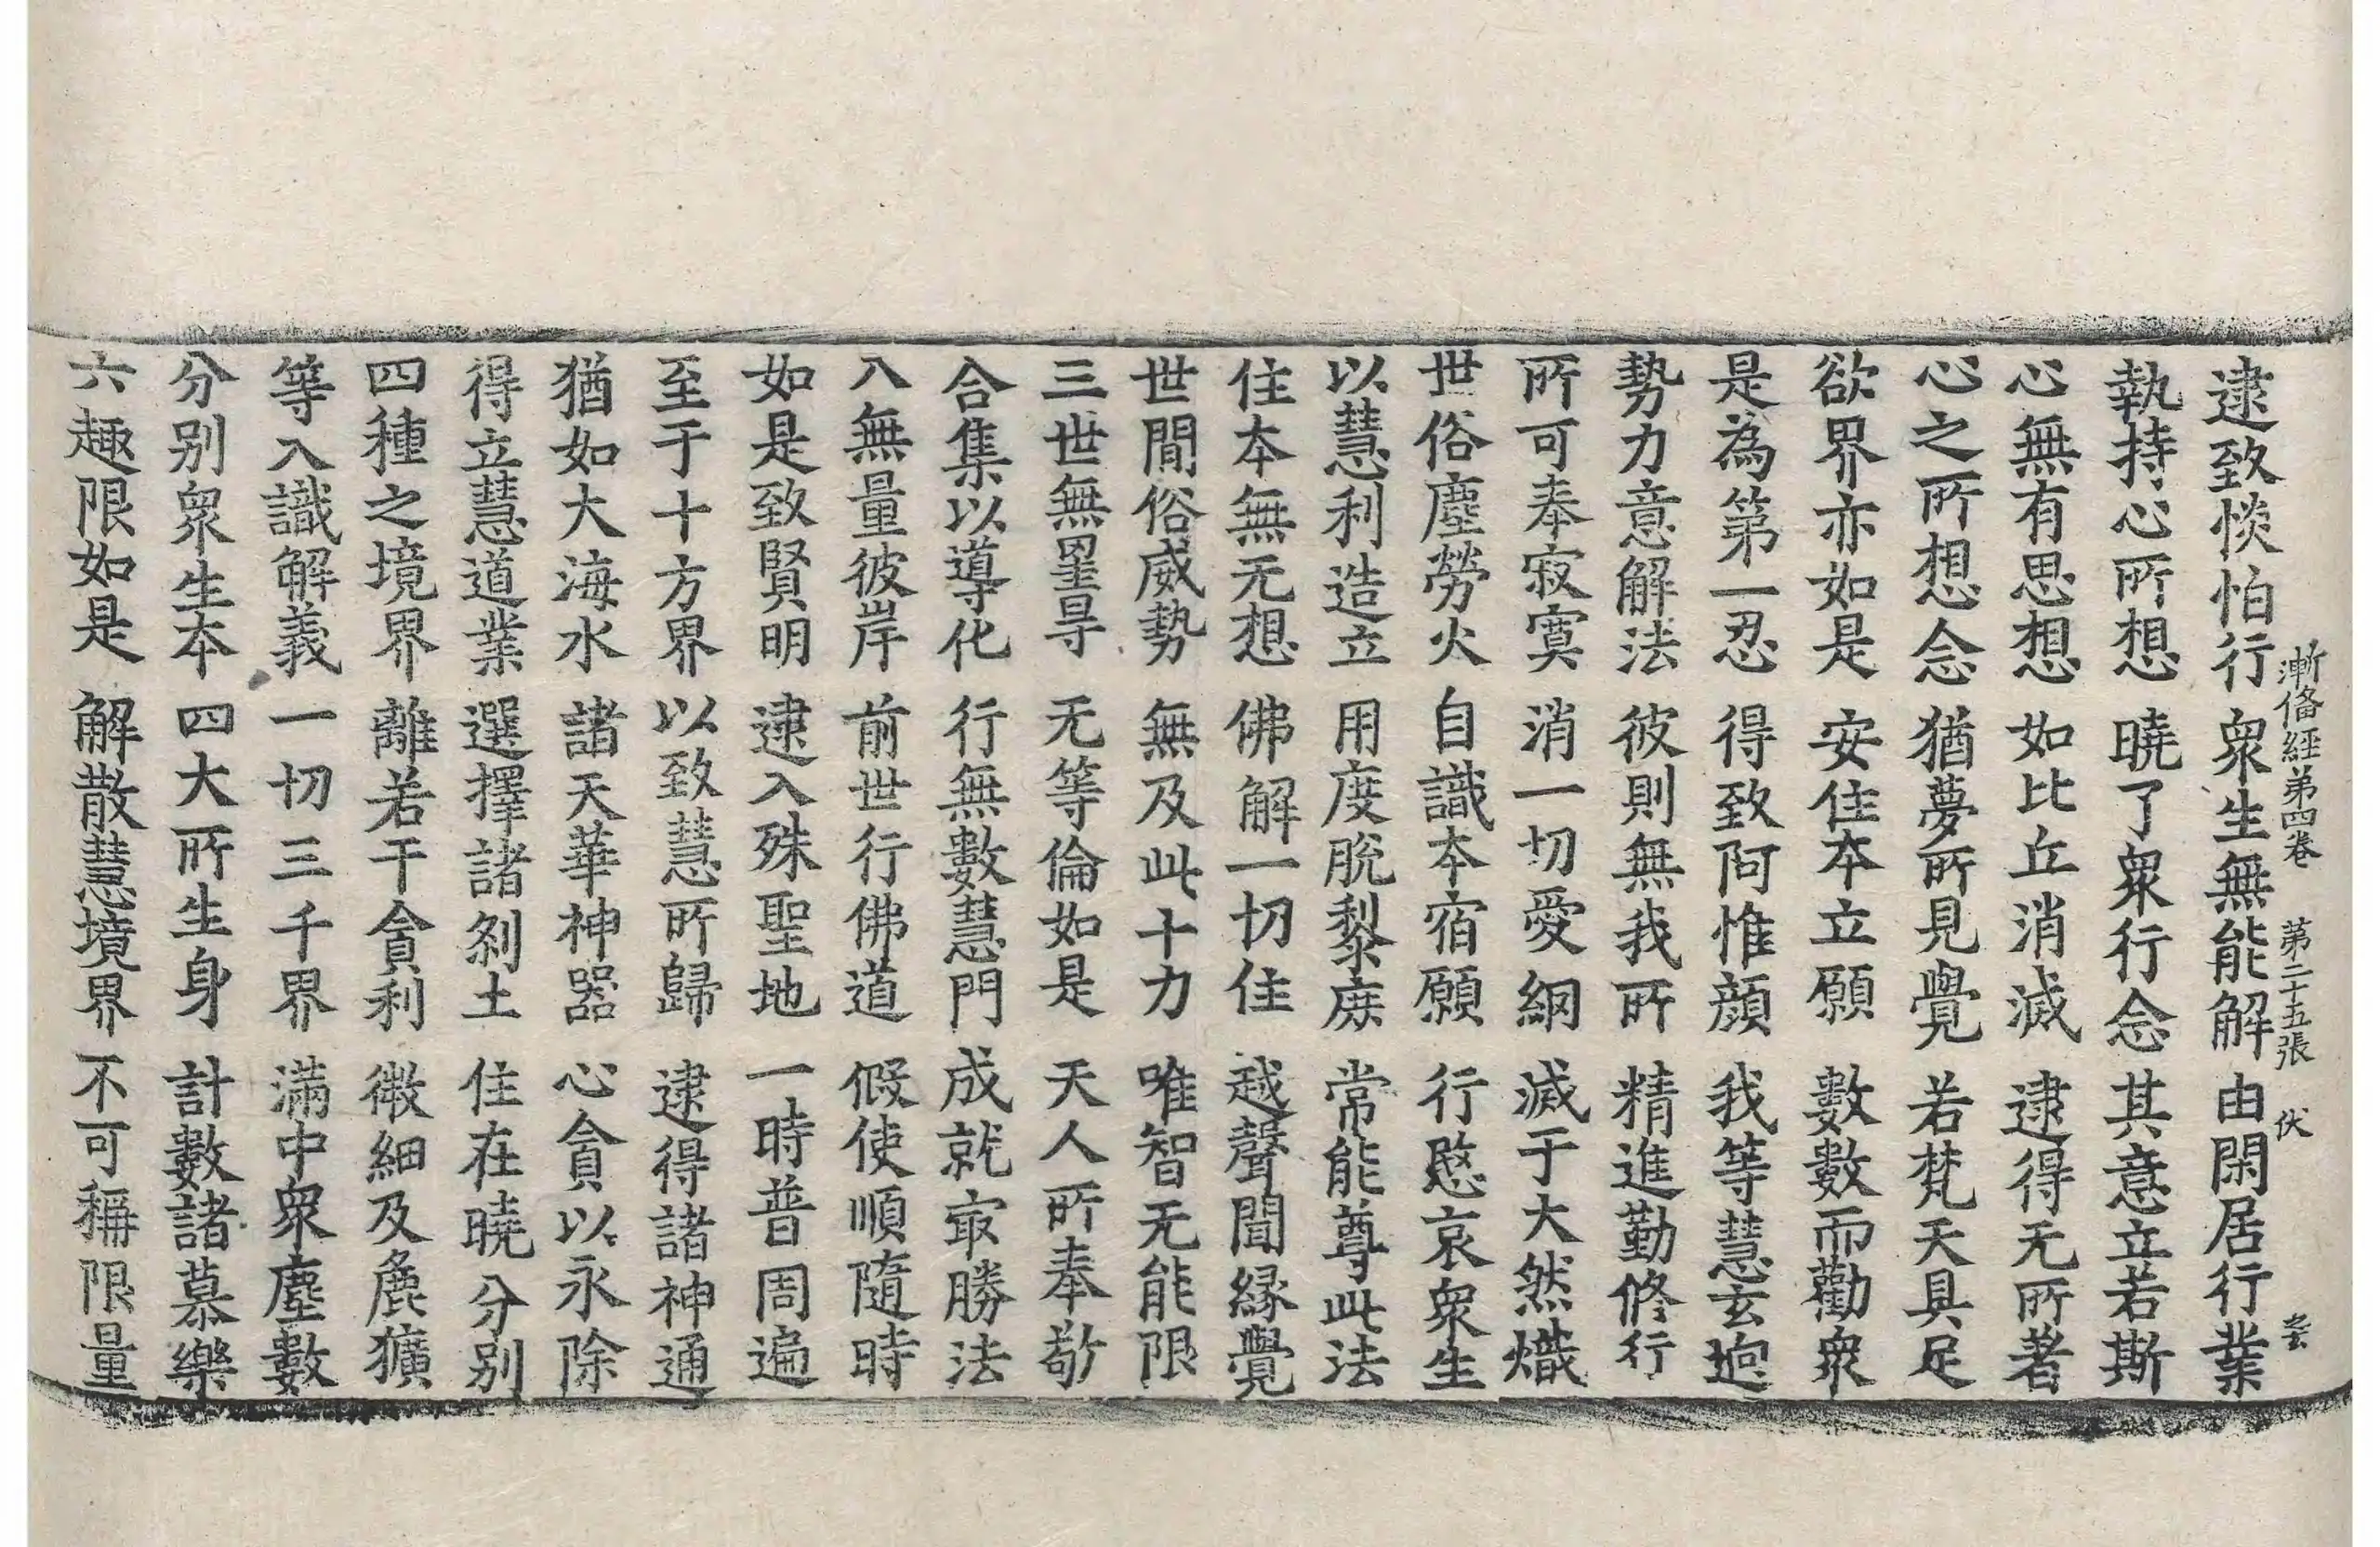 漸俻經第四卷 第二十五張 伏
逮致惔怕行 衆生無能解 由閑居行業
執持心所想 曉了衆行念 其意立若斯
心無有思想 如比丘消滅 逮得无所著
心之所想念 猶夢所見覺 若梵天具足
欲界亦如是 安住本立願 數數而勸衆
是為第一忍 得致阿惟顔 我等慧玄逈
勢力意解法 彼則無我所 精進勤修行
所可奉寂寞 消一切愛網 滅于大然熾
世俗塵勞火 自識本宿願 行愍哀衆生
以慧利造立 用度脫黎庶 常能尊此法
住本無无想 佛解一切住 越聲聞縁覺
世間俗威勢 無及此十力 唯智无能限
三世無罣㝵 无等倫如是 天人所奉敬
合集以導化 行無數慧門 成就㝡勝法
入無量彼岸 前世行佛道 假使順隨時
如是致賢明 逮入殊聖地 一時普周遍
至于十方界 以致慧所歸 逮得諸神通
猶如大海水 諸天華神器 心貪以永除
得立慧道業 選擇諸刹土 住在曉分别
四種之境界 離若干貪利 微細及麁獷
等入識解義 一切三千界 滿中衆塵數
分别衆生本 四大所生身 計數諸慕樂
六趣限如是 解散慧境界 不可稱限量